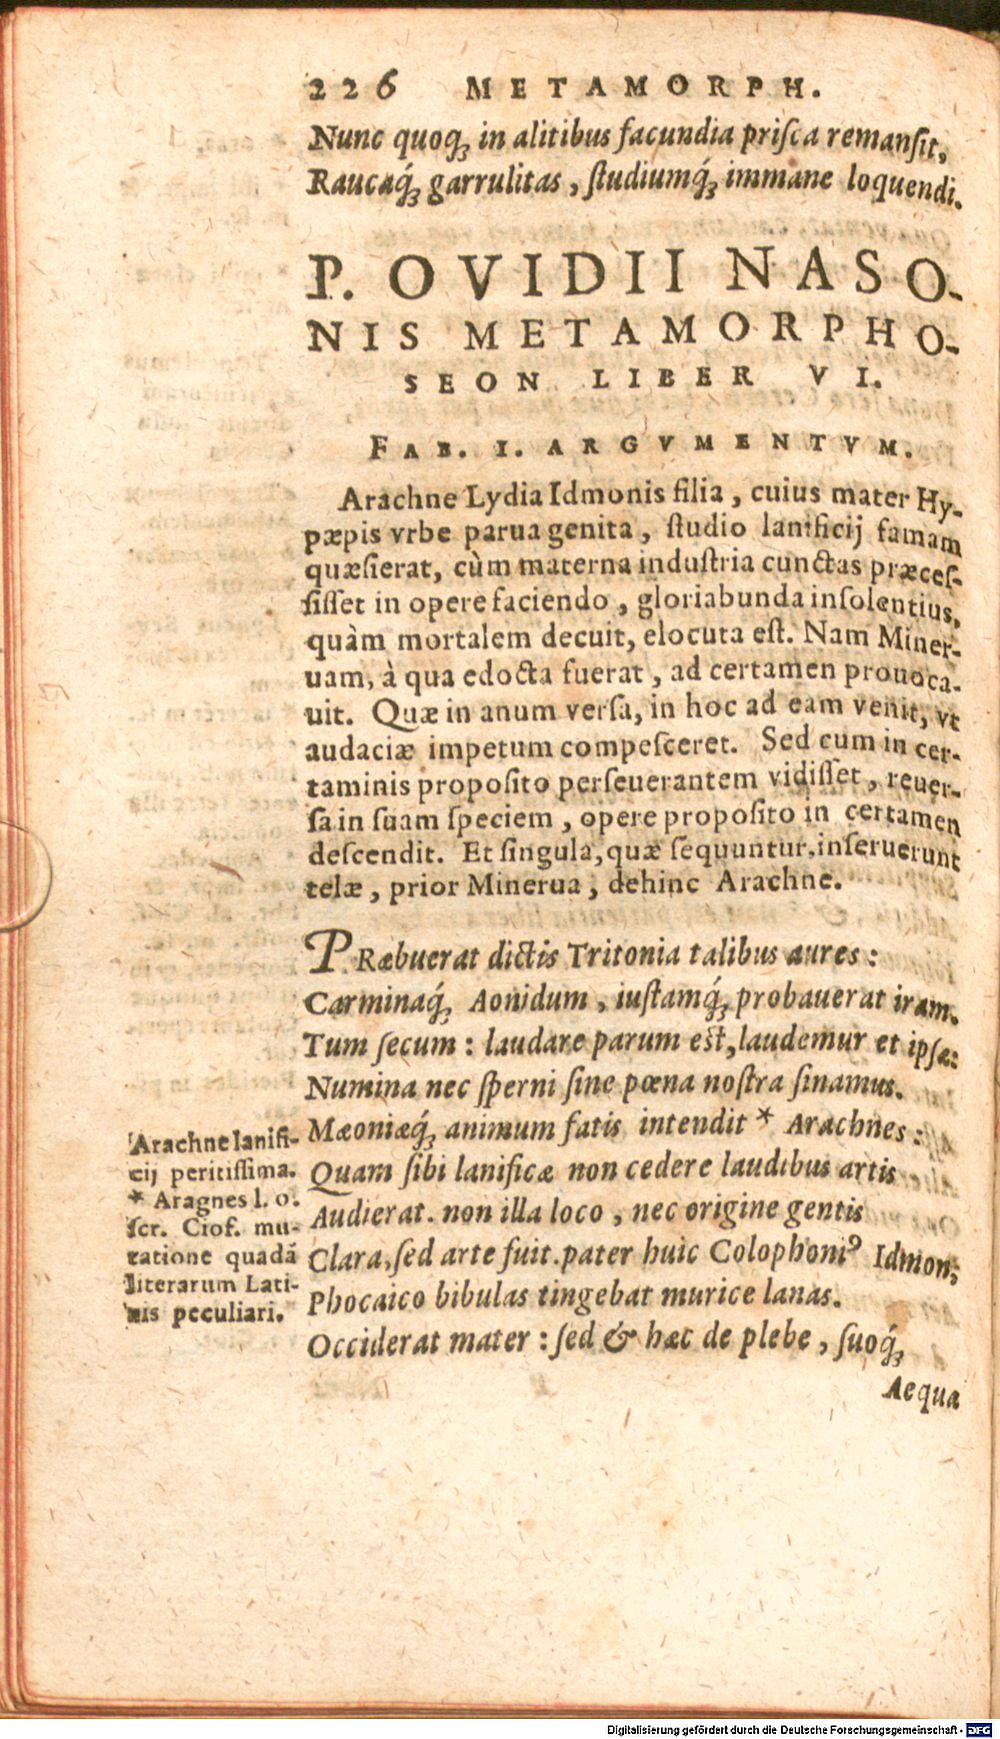 226 METAMORPH.
Nunc quoq́; in alitibus facundia priſca remanſit,
Raucaq́; garrulitas, ſtudiumq́; immane loquendi.
P. OVIDII NASO-
NIS METAMORPHO-
SEON LIBER VI.
FAB. I. ARGVMENTVM.
Arachne Lydia Idmonis filia, cuius mater Hy-
pæpis vrbe parua genita, ſtudio lanificij famam
quæſierat, cùm materna induſtria cunctas præceſ-
ſiſſet in opere faciendo, gloriabunda inſolentius,
quàm mortalem decuit, elocuta eſt. Nam Miner-
uam, à qua edocta fuerat, ad certamen prouoca-
uit. Quæ in anum verſa, in hoc ad eam venit, vt
audaciæ impetum compeſceret. Sed cum in cer-
taminis propoſito perſeuerantem vidiſſet, reuer-
ſa in ſuam ſpeciem, opere propoſito in certamen
deſcendit. Et ſingula, quæ ſequuntur, inſeruerunt
telæ, prior Minerua, dehinc Arachne.
PRæbuerat dictis Tritonia talibus aures:
Carminaq́; Aonidum, iuſtamq́; probauerat iram.
Tum ſecum: laudare parum eſt, laudemur et ipſæ:
Numina nec ſperni ſine pœna noſtra ſinamus.
Mæoniæq́; animum fatis intendit * Arachnes:
Quam ſibi lanificæ non cedere laudibus artis
Audierat. non illa loco, nec origine gentis
Clara, ſed arte fuit. pater huic Colophoniꝰ Idmon;
Phocaico bibulas tingebat murice lanas.
Occiderat mater: ſed & hæc de plebe, ſuoq́;
Aequa
Arachne lanifi-
cij peritiſſima.
* Aragnes l. o.
ſcr. Ciof. mu-
tatione quadã
literarum Lati-
nis peculiari.
Digitalisierung gefördert durch die Deutsche Forschungsgemeinschaft - DFG